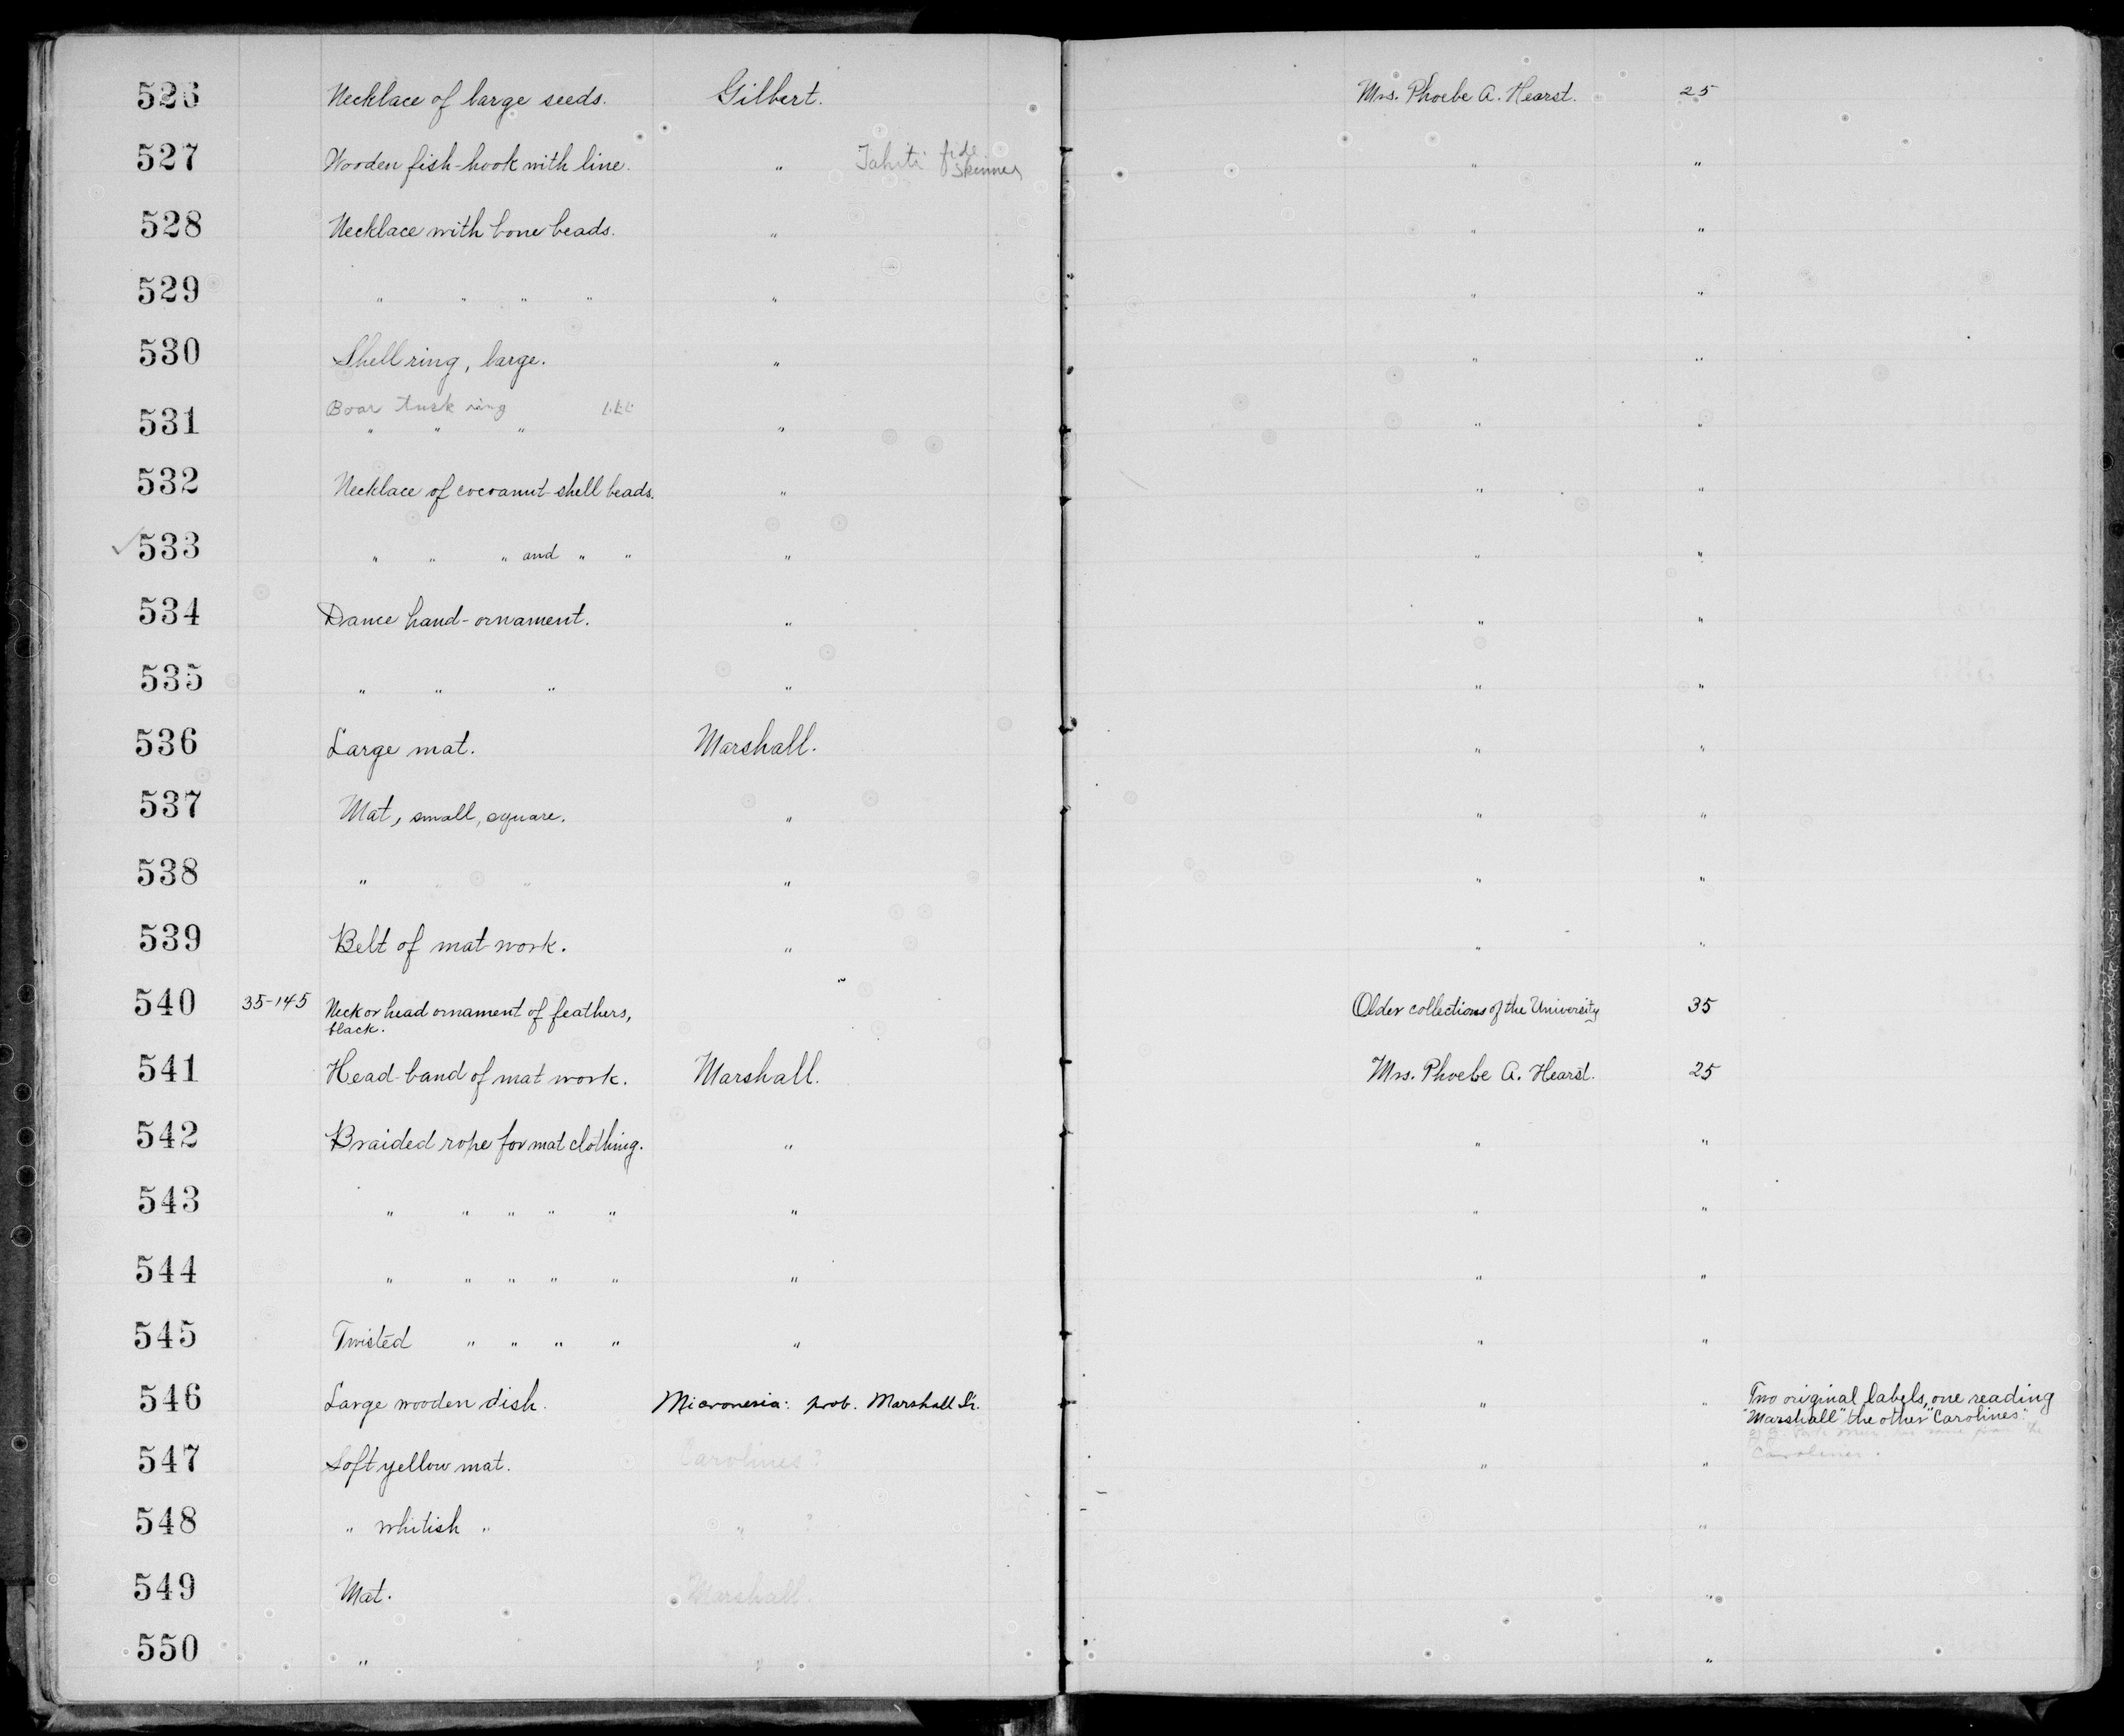 526 Necklace of large seeds. Gilbert. Mrs. Phoebe A. Hearst. 25
527 Wooden fish-hook with line. " Tahiti fide Skinner " "
528 Necklace with bone beads. " " "
529 " " " " " " "
530 Shell ring, large. " " "
Boar tusk ring
531 " " " " " "
532 Necklace of cocoanut-shell beads. " " "
✓533 " " " and " " " " "
534 Dance hand-ornament. " " "
535 " " " " " "
536 Large mat. Marshall. " "
537 Mat, small, square. " " "
538 " " " " " "
539 Belt of mat work. " " "
540 35-145 Neck or head ornament of feathers, Older collections of the University 35
black.
541 Head-band of mat work. Marshall. Mrs. Phoebe A. Hearst. 25
542 Braided rope for mat clothing. " " "
543 " " " " " " " "
544 " " " " " " " "
545 Twisted " " " " " " "
546 Large wooden dish. Micronesia: prob. Marshall Is. " " Two original labels, one reading
"Marshall" the other "Carolines."
Carolines.
547 Soft yellow mat. Carolines? " "
548 " whitish " " ? "
549 Mat. Marshall. "
550 " " "